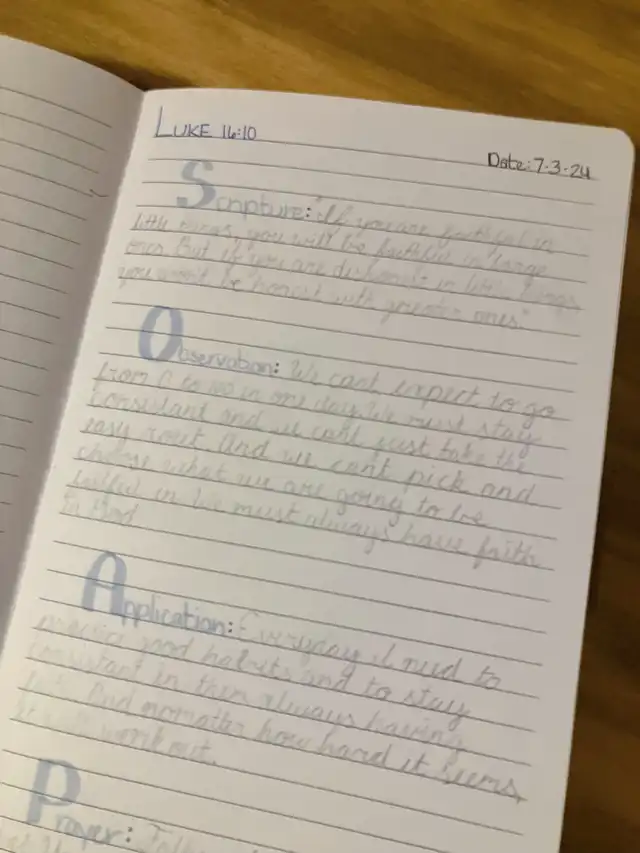 LUKE 16:10
Date: 7.3.24
Scripture: "If you are faithful in
little things, you will be faithful in large
ones. But if you are dishonest in little things,
you won't be honest with greater ones."
Observation: We cant expect to go
from 0 to 100 in one day. We must stay
consistant and we cant just take the
easy rout. And we cant pick and
choose what we are going to be
in. We must always have faith
in God
Application: Everyday I need to
practice good habits and to stay
consistant in them always having
And nomatter how hard it seems,
work out.
Prayer: